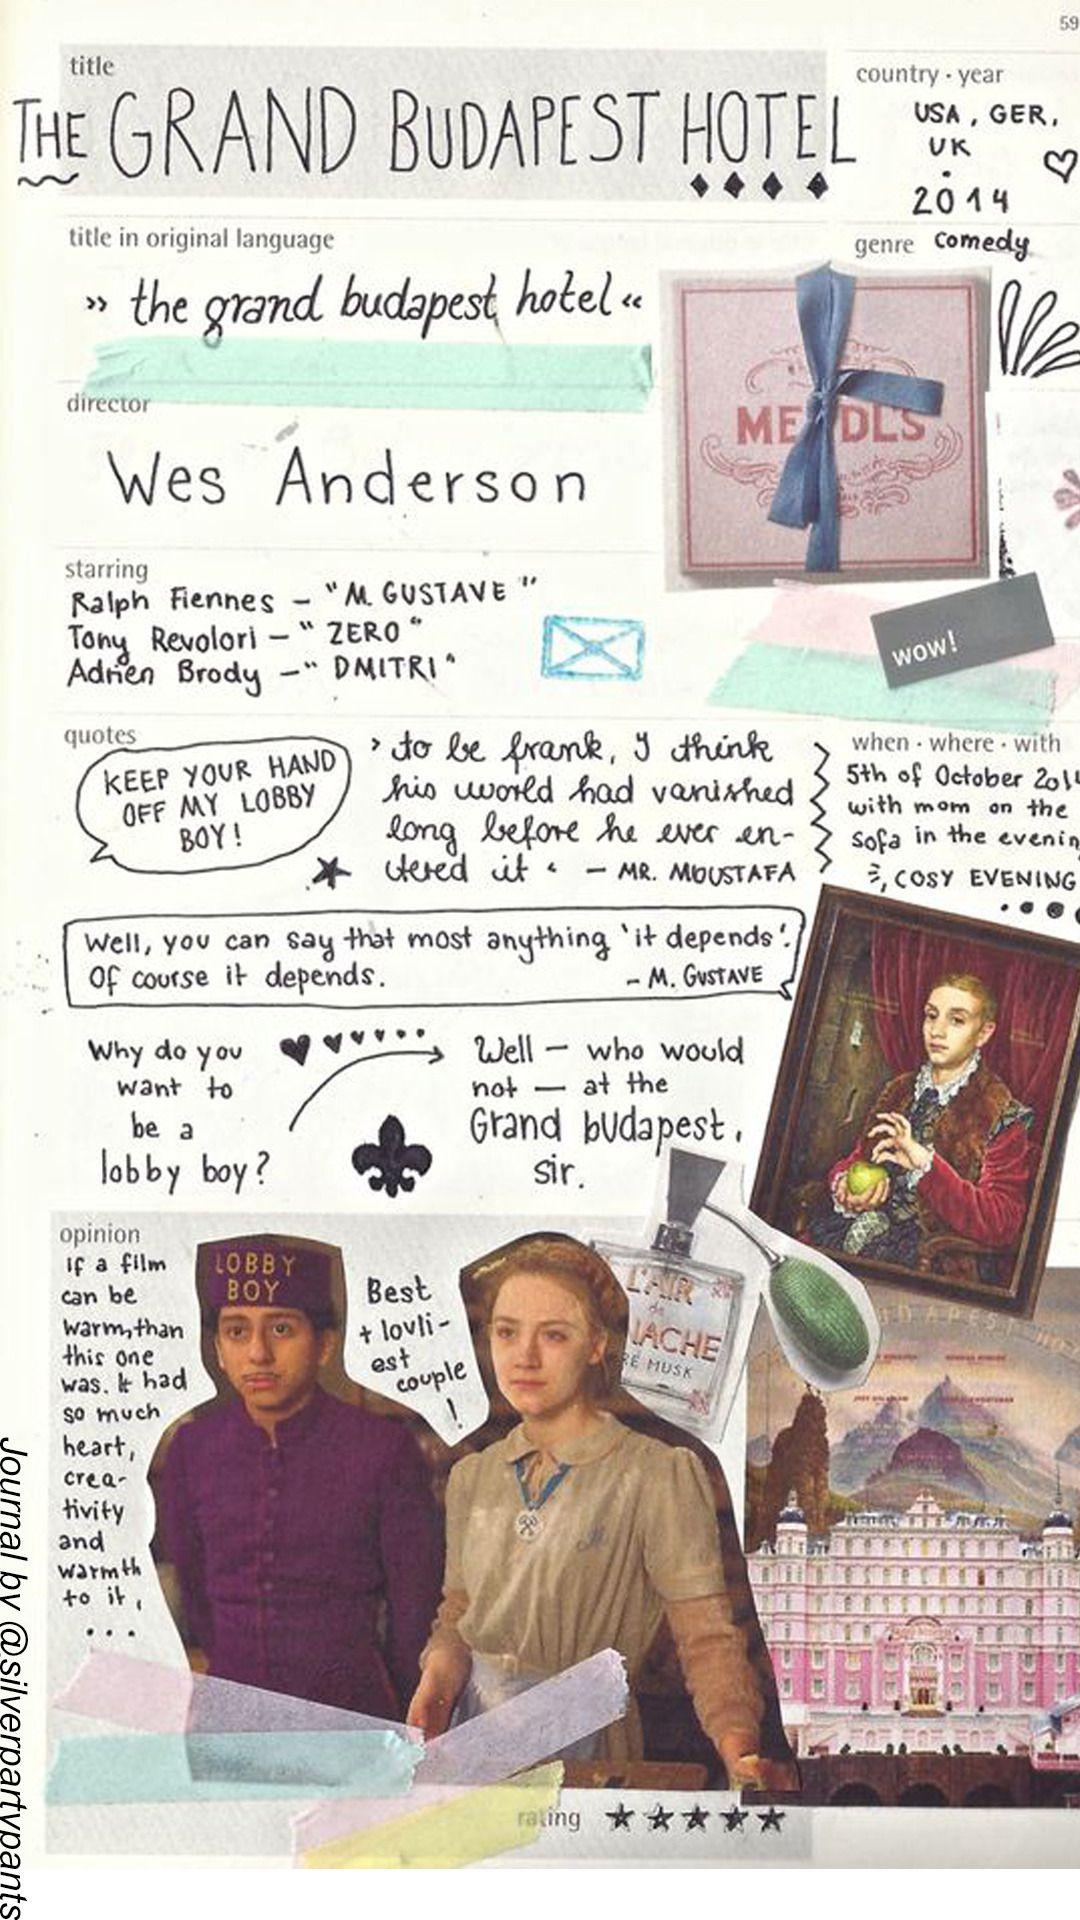 59
title
THE GRAND BUDAPEST HOTEL
country · year
USA, GER,
UK
2014
title in original language
genre comedy
» the grand budapest hotel «
MENDL'S
director
Wes Anderson
starring
Ralph Fiennes – "M. GUSTAVE"
Tony Revolori – "ZERO"
Adrien Brody – "DMITRI"
wow!
quotes
KEEP YOUR HAND
OFF MY LOBBY
BOY!
› to be frank, I think
his world had vanished
long before he ever en-
tered it ‹ – MR. MOUSTAFA
when · where · with
5th of October 2014
with mom on the
sofa in the evenin
COSY EVENING
Well, you can say that most anything 'it depends'.
Of course it depends.
– M. GUSTAVE
Why do you
want to
be a
lobby boy?
Well – who would
not – at the
Grand budapest,
sir.
opinion
if a film
can be
warm, than
this one
was. It had
so much
heart,
crea-
tivity
and
warmth
to it,
...
LOBBY
BOY
Best
+ lovli-
est
couple
!
L'AIR
de
NACHE
RE MUSK
UDAPEST HOT
rating ★★★★★
Journal by @silverpartypants